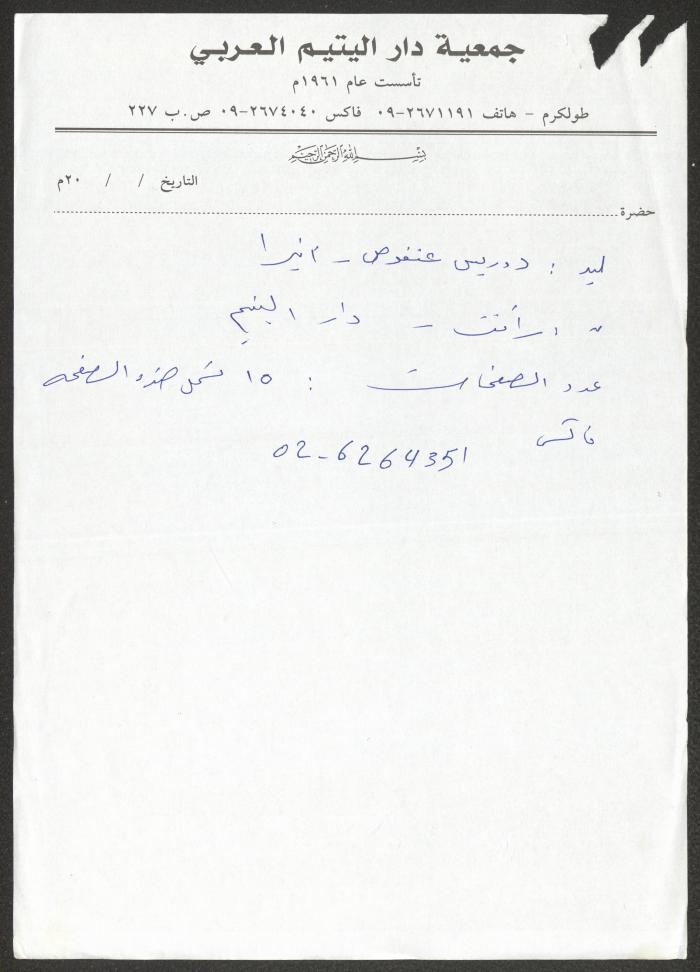 جمعية دار اليتيم العربي
تأسست عام ١٩٦١م
طولكرم - هاتف ٢٦٧١١٩١-٠٩ فاكس ٢٦٧٤٠٤٠-٠٩ ص.ب ٢٢٧
بسم الله الرحمن الرحيم
التاريخ / / ٢٠م
حضرة
ليد : دوريس عنفوص - انيرا
دار اليتيم
عدد الصفحات : ١٥ تشمل هذه الصفحه
فاكس
02-6264351